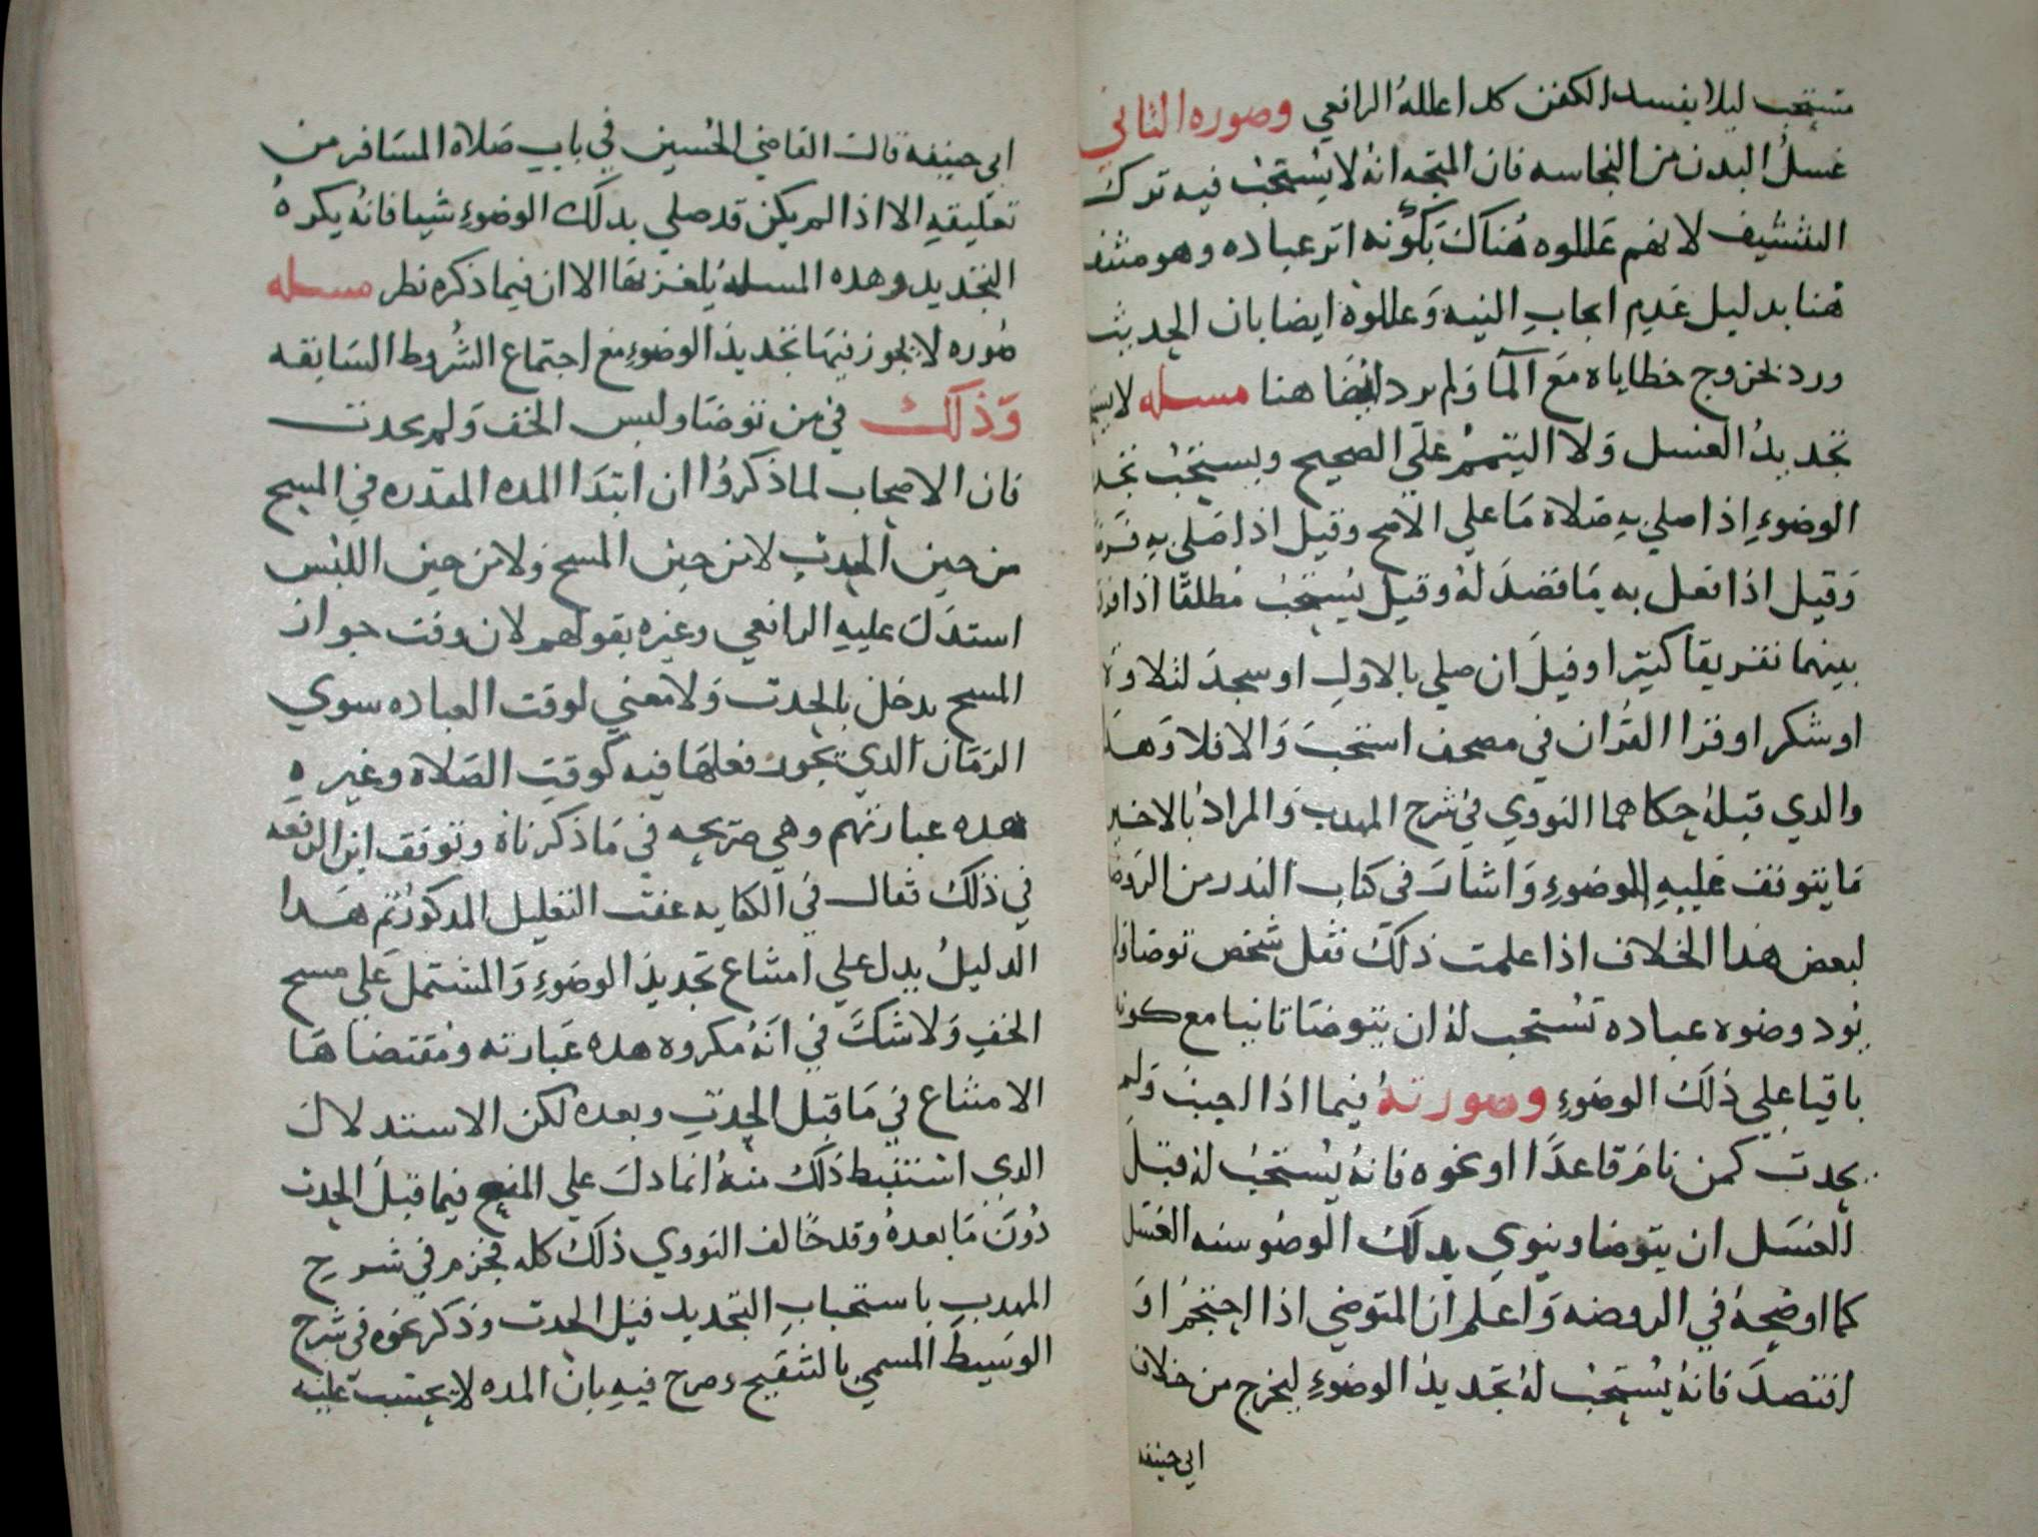 مستحب ليلا يفسد الكفن كدا علله الرافعي وصوره الثاني
غسل البدن من النجاسه فان المتجه انه لا يستحب فيه ترك
التنشيف لانهم عللوه هناك بكونه اثر عباده وهو منتف
هنا بدليل عدم ايجاب النيه وعللوه ايضا بان الحديث
ورد بخروج خطاياه مع المآ ولم يرد ايضا هنا مسله لا
تجديد الغسل ولا التيمم على الصحيح ويستحب
الوضوءِ اذا صلي به صلاة ما على الاصح وقيل اذا صلى به
وقيل اذا فعل به ما قصد له وقيل يستحب مطلقا اذا
بينهما تفريقا كثيرا وقيل ان صلي بالاول او سجد لتلاوة
او شكر او قرا القرآن في مصحف استحب والا فلا
والدي قبله حكاهما النووي في شرح المهدب والمراد بالاخير
ما يتوقف عليه الوضوءِ واشار فى كتاب الندر من
لبعض هدا الخلاف اذا علمت ذلك فقل شخص توضا
يود وضوه عباده تستحب له ان يتوضا ثانيا مع كونه
باقيا على ذلك الوضوءِ وصورته فيما اذا اجنب ولم
يحدث كمن نام قاعدًا او نحوه فانه يستحب له قبل
الغسل ان يتوضا وينوي بدلك الوضو سنه الغسل
كما اوضحه في الروضه واعلم ان المتوضي اذا احتجم او
افتصد فانه يستحب له تجديد الوضوءِ ليخرج من خلاف
ابي حنيفه
ابي حنيفه قالت القاضي الحسين في باب صلاة المسافر من
تعليقه الا اذا لم يكن قد صلي بدلك الوضوءِ شيا فانه يكره
التجديد وهده المسله يلغز بها الا ان فيما ذكره نظر مسله
صوره لا يجوز فيها تجديد الوضوءِ مع اجتماع الشروط السابقه
وَذلك في من توضا ولبس الخف ولم يحدث
فان الاصحاب لما ذكروا ان ابتدا المده المقدره في المسح
من حين الحدث لا من حين المسح ولا من حين اللبس
استدل عليه الرافعي وغيره بقولهم لان وقت جواز
المسح يدخل بالحدث ولا معني لوقت العباده سوي
الزمان الدي يجوز فعلها فيه كوقت الصلاة وغيره
هده عبارتهم وهي صريحه في ما ذكرناه وتوقف ابن الرفعه
في ذلك فقال في الكفايه عقب التعليل المدكور ثم هدا
الدليل يدل علي امتناع تجديد الوضوءِ والمشتمل علي مسح
الخف ولا شك في انه مكروه هده عبارته ومقتضاها
الامتناع في ما قبل الحدث وبعده لكن الاستدلال
الدي استنبط ذلك منه انما دل على المنع فيما قبل الحدث
دون ما بعده وقد خالف النووي ذلك كله فجزم في شرح
المهدب باستحباب التجديد قبل الحدث وذكر نحوه فى شرح
الوسيط المسمي بالتنقيح وصرح فيه بان المده لا يحتسب عليه